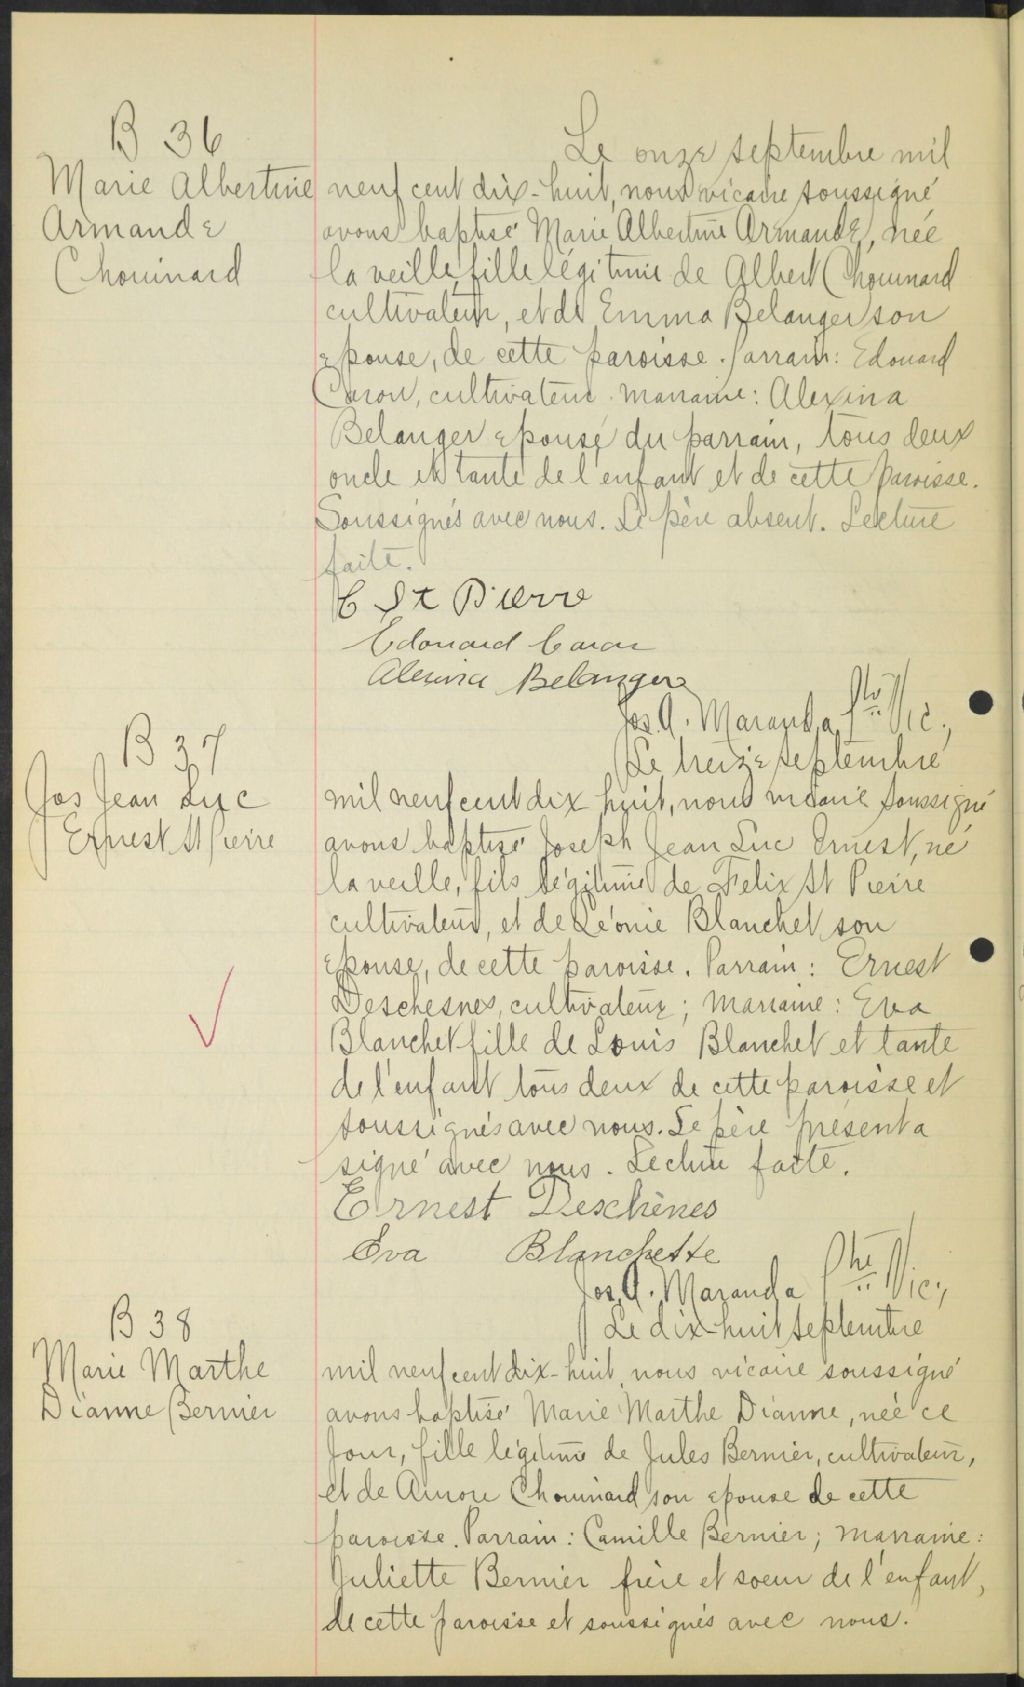 B 36
Marie Albertine
Armande
Chouinard
Le onze septembre mil
neuf cent dix-huit, nous vicaire soussigné
avons baptisé Marie Albertine Armande, née
la veille, fille légitime de Albert Chouinard
cultivateur, et de Emma Belanger son
epouse, de cette paroisse. Parrain: Edouard
Caron, cultivateur. marraine: Alexina
Belanger epouse du parrain, tous deux
oncle et tante de l'enfant et de cette paroisse.
Soussignés avec nous. Le père absent. Lecture
faite.
C St Pierre
Edouard Caron
Alexina Belanger
Jos. A. Maranda Ptre Vic.,
B 37
Jos Jean Luc
Ernest St Pierre
Le treize septembre
mil neuf cent dix huit, nous vicaire soussigné
avons baptisé Joseph Jean Luc Ernest, né
la veille, fils légitime de Felix St Pierre
cultivateur, et de Léonie Blanchet son
epouse, de cette paroisse. Parrain: Ernest
Deschesnes, cultivateur; marraine: Eva
Blanchet fille de Louis Blanchet et tante
de l'enfant tous deux de cette paroisse et
soussignés avec nous. Le père présent a
signé avec nous. Lecture faite.
Ernest Deschènes
Eva Blanchette
Jos. A. Maranda Ptre Vic.,
B 38
Marie Marthe
Dianne Bernier
Le dix-huit septembre
mil neuf cent dix-huit, nous vicaire soussigné
avons baptisé Marie Marthe Dianne, née ce
jour, fille légitime de Jules Bernier, cultivateur,
et de Aurore Chouinard son epouse de cette
paroisse. Parrain: Camille Bernier; marraine:
Juliette Bernier frère et soeur de l'enfant,
de cette paroisse et soussignés avec nous.